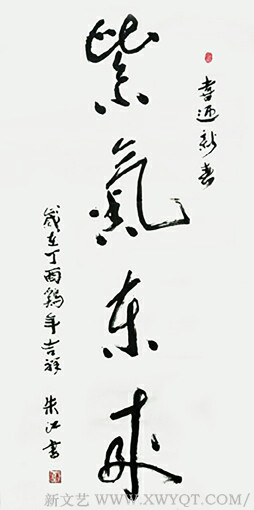 喜迎新春
紫氣東來
歲在丁酉鷄年吉祥 朱江書
新文艺 WWW.XWYQT.COM/